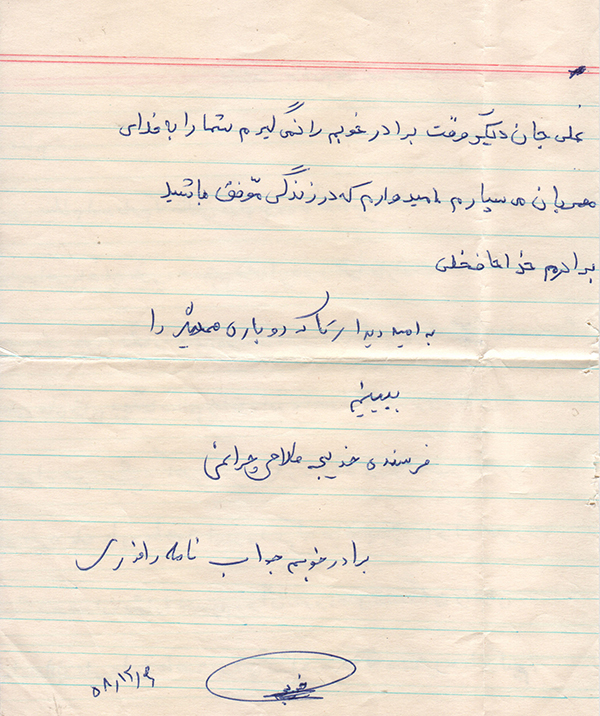 علی جان دیگر وقت برادر خوبم را نمی گیرم شما را به خدای
مهربان می سپارم امیدوارم که در زندگی موّفق باشید
برادرم خدا حافظی
به امید دیدار تا که دوباره همدیگر را
ببینیم
فرسنده خدیجه فلاحی چراتی
برادر خوبم جواب نامه را فوری
خدیجه
۵۸/۱۲/۶